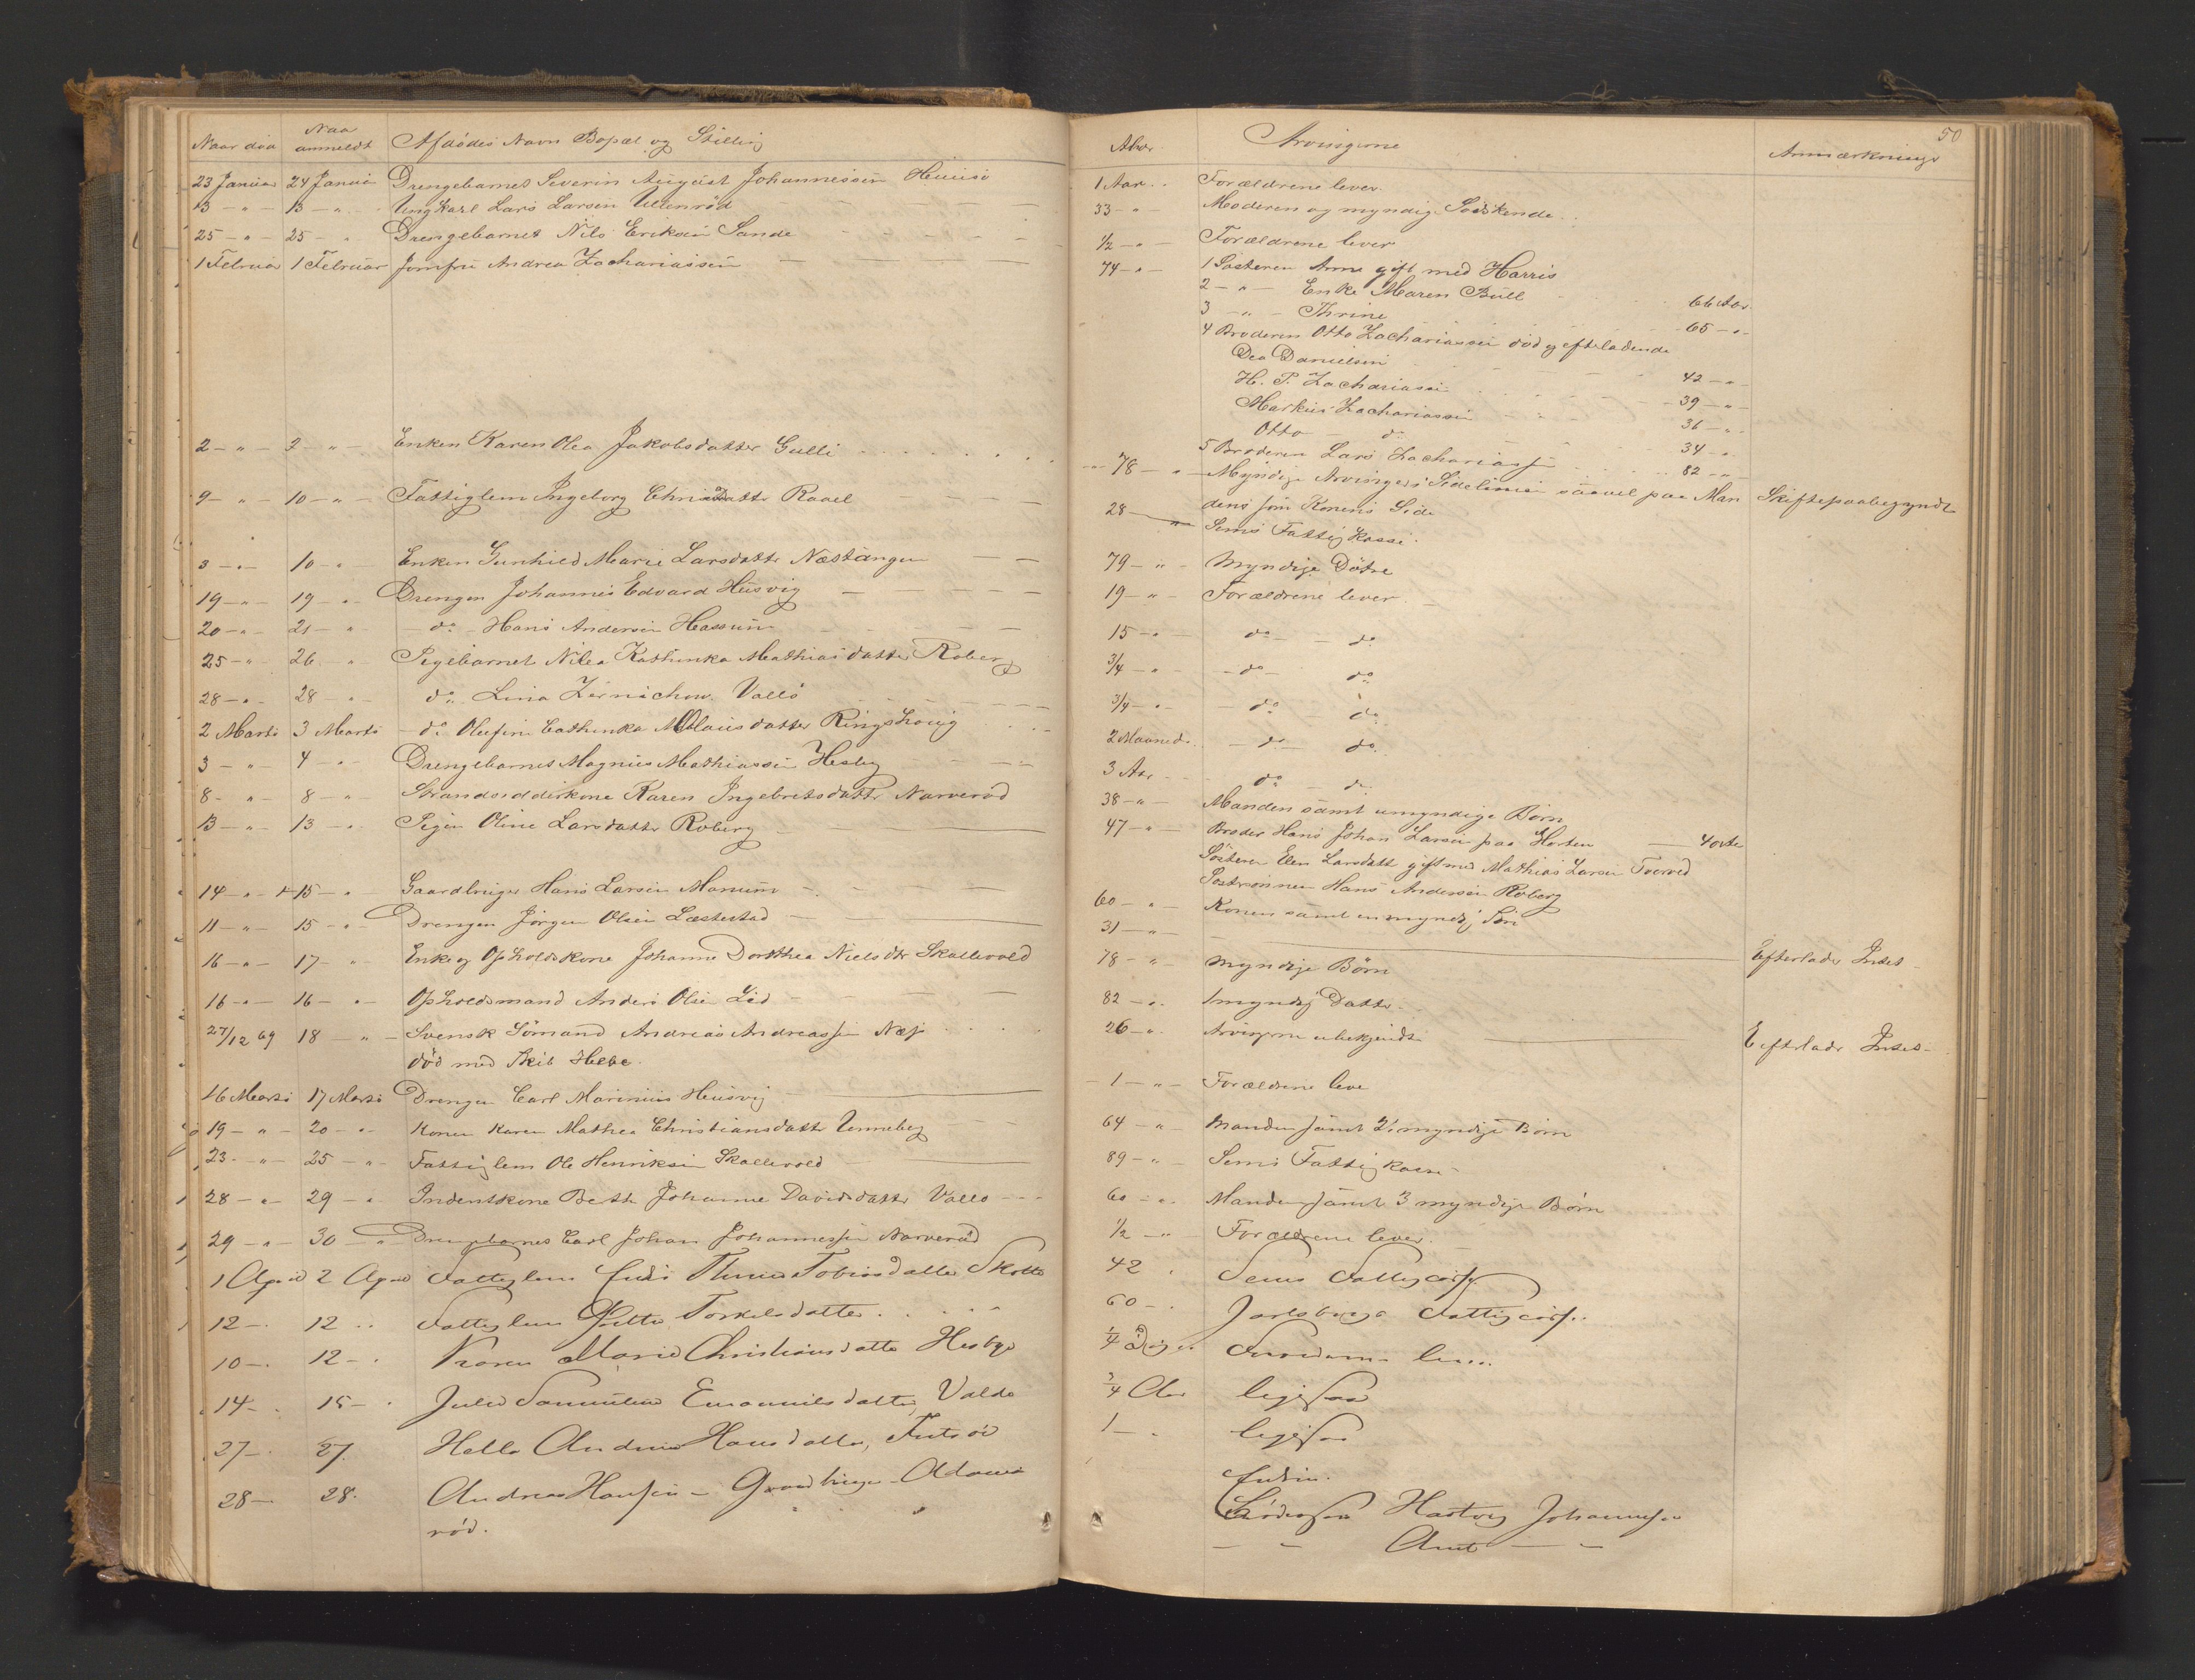 Naar død
Naar anmeldt
Afdødes Navn Bopæl og Stilling
23 Januar 24 Januar Drengebarnet Severin August Johannessen
13 - " - 13 - " - Ungkarl Lars Larsen Ullenrød
25 - " - 25 - " Drengebarnet Nils Eriksen Sande
1 Februar 1 Februar Jomfru Andrea Zachariassen
2 - " - 2 - " - Enken Karen Olea Jakobsdatter Gulli
9 - " - 10 - " - Fattiglem Ingeborg Rael
3 - " - 10 - " Enken Gunhild Marie Larsdattr Næstangen
19 - " - 19 - " - Drengen Johannes Edvard Husvig
20 - " - 21 - " - do - Hans Andersen Hassum
25 - " - 26 - " Pigebarnet Nilea Kathinka Mathiasdatter Roberg
28 - " - 28 - " - do Lina Vallø
2 Marts 3 Marts - do Olufine Cathinka Olausdatter Ringshoug
3 - " - 4 - " - Drengebarnet Magnus Mathiassen Hesby
8 - " - 8 - " Strandsidderkone Karen Ingebretsdattr Narverød
13 - " - 13 - " Pigen Oline Larsdatter Roberg
14 - " - 15 - " Gaardbruger Hans Larsen Manum
11 - " - 15 - " - Drengen Jørgen Olsen
16 - " - 17 - " Enke og Opholdskone Johanne Dorthea Nielsdtr Skallevold
16 - " - 16 - " - Opholdsmand Anders Olsen Lid
27/12 69 18 - " - Svensk Sømand Andreas Andreassen
død med Skib Hebe
16 Marts 17 Marts Drengen Carl Marinius Husvig
19 - " - 20 - " - Konen Karen Mathea Christiansdattr Unneberg
23 - " - 25 - " - Fattiglem Ole Henriksen Skallevold
28 - " - 29 - " Johanne Davidsdattr Vallø
29 - " - 30 - " - Drengebarnet Carl Johan Johannessen Narverød
1 April 2 April Fattiglem Tobiasdatter
12 - . 12 . . Fattiglem Torkelsdatter
10 - . 12 - . Karen Marie Christiansdatter Hesby
14 - . 15 - . Julie Emanuelsdatter, Valdø
27 - . 27. Helle Andrea Hansdatter,
28 - . 28. Andreas Hansen - Gaardbruger - Adams
rød.
50
Alder
Arvingerne
Anmærkninger
1 Aar . . Forældrene lever
33 - " Moderen og myndige Sødskende
1/2 - " - Forældrene lever
74 - " - 1 Søsteren Anne gift med Harris
2 - " - Enke Maren Bull 66 Aar
3 - " - Thrine 65 - " -
4 Broderen Otto Zachariassen død og efterladende
Danielsen 42 - " -
H. P. Zachariassen 39 - " -
Markus Zachariassen 36 - " -
Otto do 34 - "
5 Broderen Lars Zachariassen 82 - "
78 - " Myndige Arvinger i Sidelinien saavel paa Man Skiftepaabegyndt
dens som Konens Side
28 - " Sems Fattigkasse
79 - " - Myndige Døtre
19 - " - Forældrene lever
15 - " do - do
3/4 - " - do do
3/4 - " - do do
2 Maaneder - do do
3 Aar do - do
38 - " - Manden samt umyndige Børn
47 - " - Broder Hans Johan Larsen paa Horten
Søsteren Elen Larsdattr gift med Mathias Larsen Tverved
Søstersønnen Hans Andersen Roberg
60 - " - Konen samt en myndig Søn
31 - " - Efterlader Intet
78 - " Myndige Børn
82 - " . 1 myndig Datter
26 - " . Arvingerne ubekjendte Efterlader Intet
- 1 - " - Forældrene leve
64 - " - Manden samt 2 myndige Børn
89 - " - Sems Fattigkasse
60 - " . Manden samt 3 myndige Børn
1/2 - " Forældrene lever
42 . Sems Fattigcasse
60 - . Jarlsbergs Fattigcasse
1/4
3/4 Aar ligesaa
1 - . ligesaa
Enken.
Hartvig Johannesen
- - - -